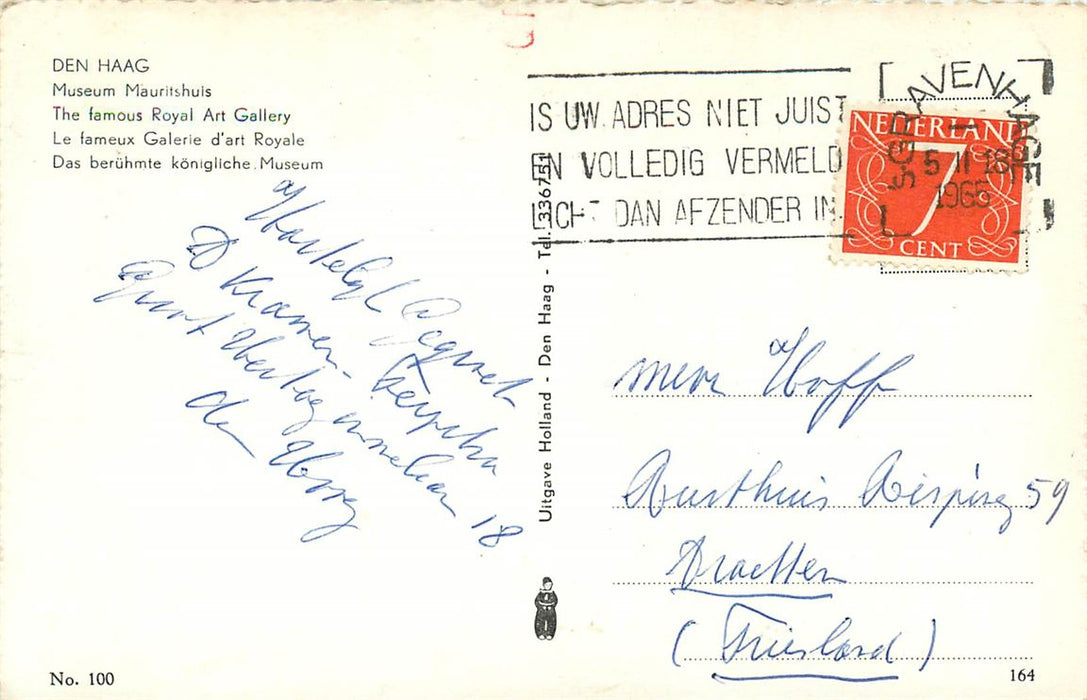 DEN HAAG
Museum Mauritshuis
The famous Royal Art Gallery
Le fameux Galerie d'art Royale
Das berühmte königliche Museum
Hartelyk
D Kramer
18
den Haag
No. 100
Uitgave Holland - Den Haag - Tel. 336751
IS UW ADRES NIET JUIST
EN VOLLEDIG VERMELD
LICHT DAN AFZENDER IN
'SGRAVENHAGE
5 II 18
1965
NEDERLAND
7
CENT
mevr Hoff
Rusthuis 59
Drachten
(Friesland)
164